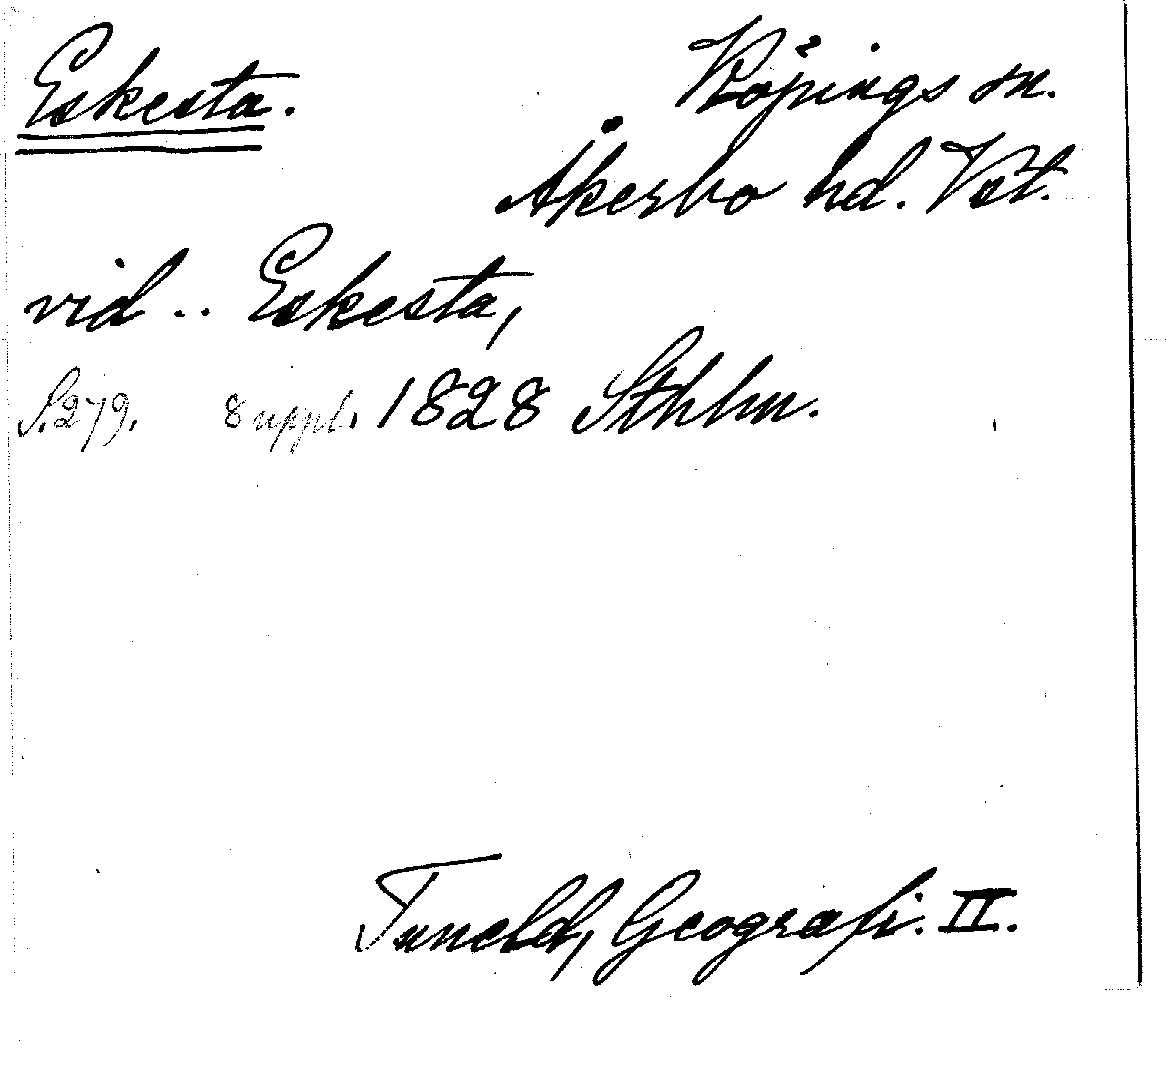 Eskesta.
Köpings sn.
Åkerbo hd. Vstl.
vid .. Eskesta,
S.279. 8 uppl. 1828 Sthlm.
Tuneld, Geografi. II.